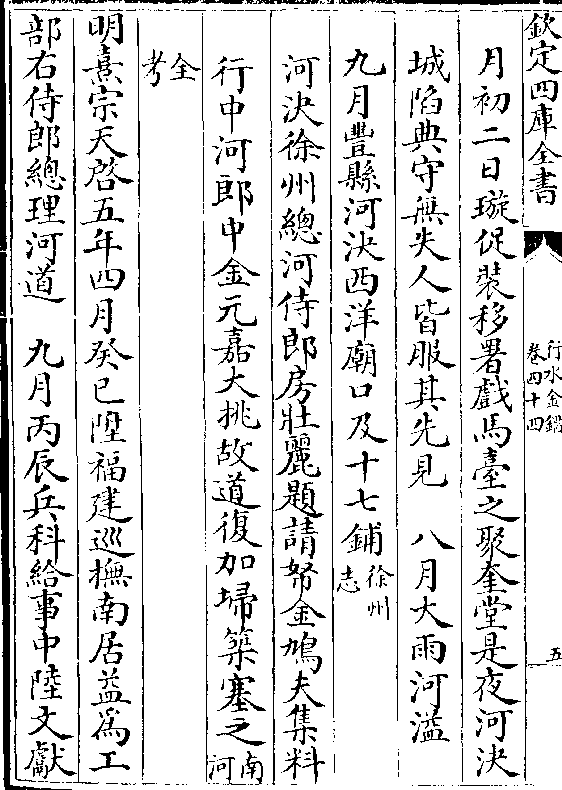 欽定四庫全書
行水金鑑
卷四十四
五
月初二日璇促裝移署戲馬臺之聚奎堂是夜河決
城陷典守無失人皆服其先見　八月大雨河溢
九月豐縣河決西洋廟口及十七鋪徐州志
河決徐州總河侍郎房壯麗題請帑金鳩夫集料
行中河郎中金元嘉大挑故道復加埽築塞之南河
全考
明熹宗天啓五年四月癸巳陞福建巡撫南居益為工
部右侍郎總理河道　九月丙辰兵科給事中陸文獻